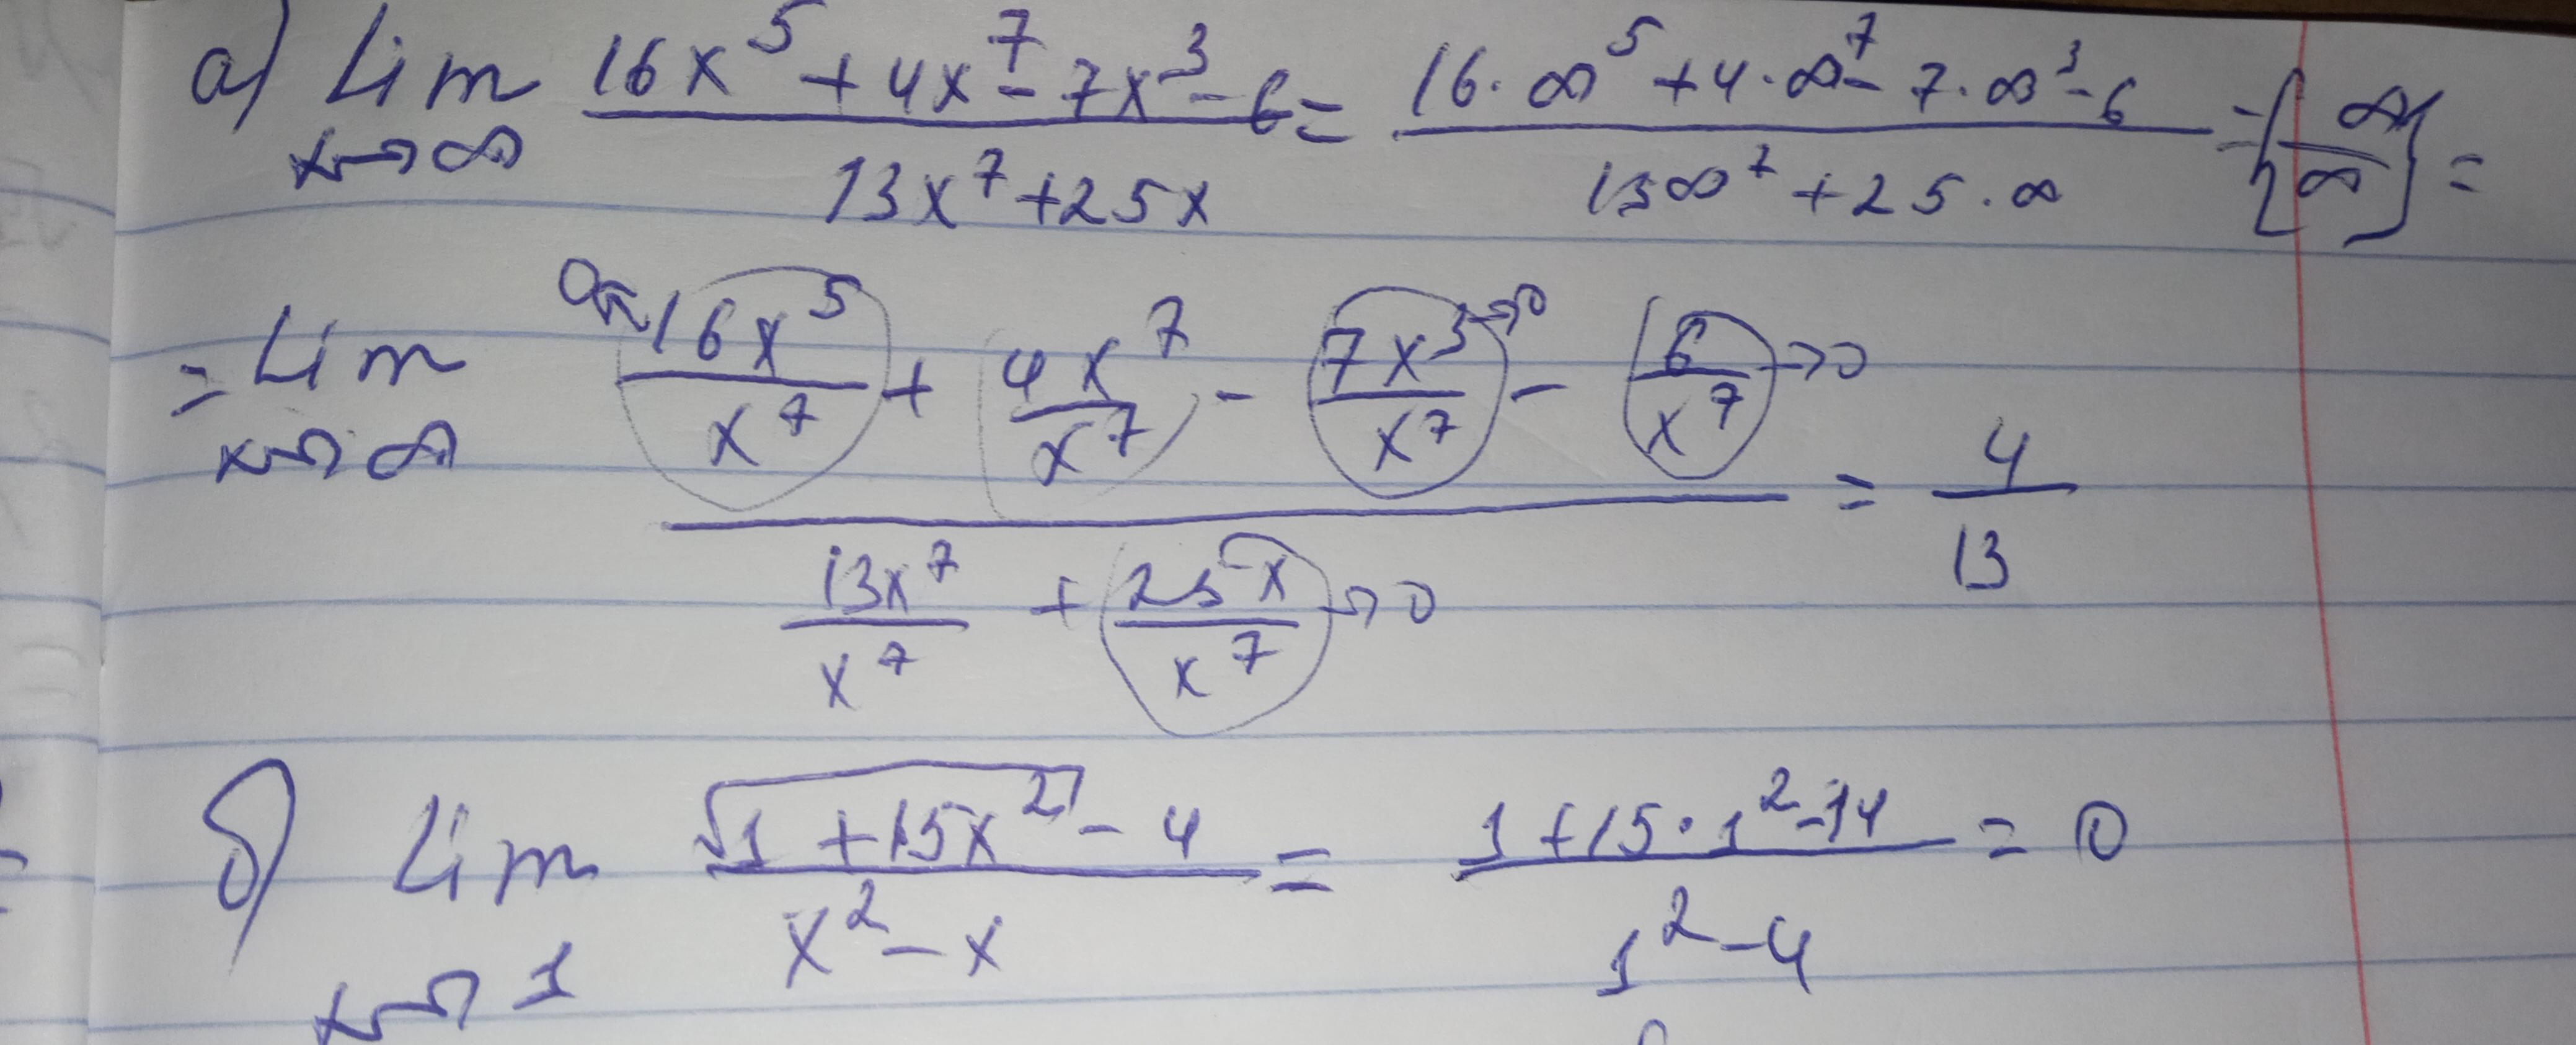 а) Lim x→∞ (16x⁵ + 4x⁷ - 7x³ - 6)/(13x⁷ + 25x) = (16·∞⁵ + 4·∞⁷ - 7·∞³ - 6)/(13∞⁷ + 25·∞) = {∞/∞} =
= Lim x→∞ (0← 16x⁵/x⁷ + 4x⁷/x⁷ - 7x³/x⁷ →0 - 6/x⁷ →0)/(13x⁷/x⁷ + 25x/x⁷ →0) = 4/13
б) Lim x→1 (√(1 + 15x²) - 4)/(x² - x) = (1 + 15·1² - 14)/(1² - 4) = 0